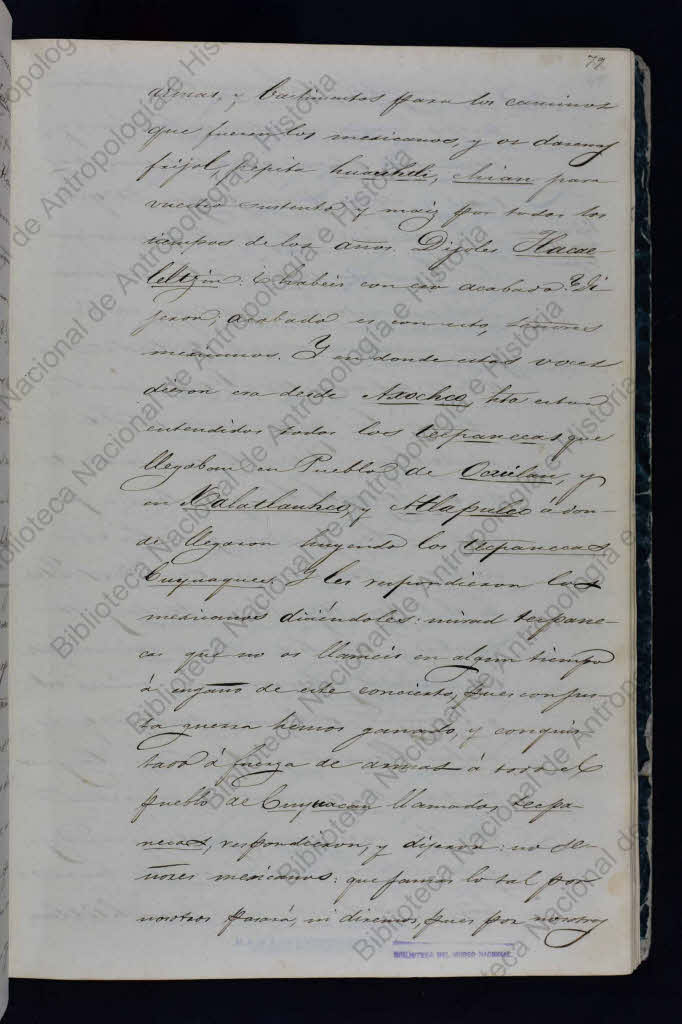 79
armas, y bastimentos para los caminos
que fueren los mexicanos, y os daremos
frijol, pepita huauhtli, chian para
vuestro sustento y maiz por todos los
tiempos de los años. Dijoles Tlacae
leltzin: ¿habeis con eso acabado? Di
jeron, acabado es con esto, señores
mexicanos. Y en donde estas voces
dieron era desde Axochco, hta estar
entendidos todos los tecpanecas que
llegaban en Pueblo de Ocuilan, y
en Xalatlauhco, y Atlapulco á don-
de llegaron huyendo los tecpanecas
Cuyuaques. Y les respondieron los
mexicanos diciéndoles: mirad tecpane-
cas que no os llameis en algun tiempo
á engaño de este concierto, pues con jus-
ta guerra hemos ganado, y conquis
tado á fuerza de armas á todo el
pueblo de Cuyuacan llamados tecpa
necas, respondieron, y dijeron: no se-
ñores mexicanos: que jamas lo tal por
nosotros pasará, ni diremos, pues por nosotros
BIBLIOTECA DEL MUSEO NACIONAL
Biblioteca Nacional de Antropología e Historia